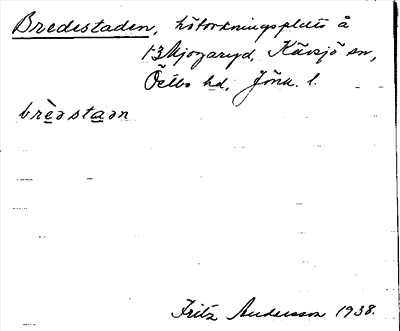 Bredestaden, hötorkningsplats å
Skjogaryd, Kävsjö sn,
Östbo hd, Jönk. l.
brèdstadn
Fritz Andersson 1938.